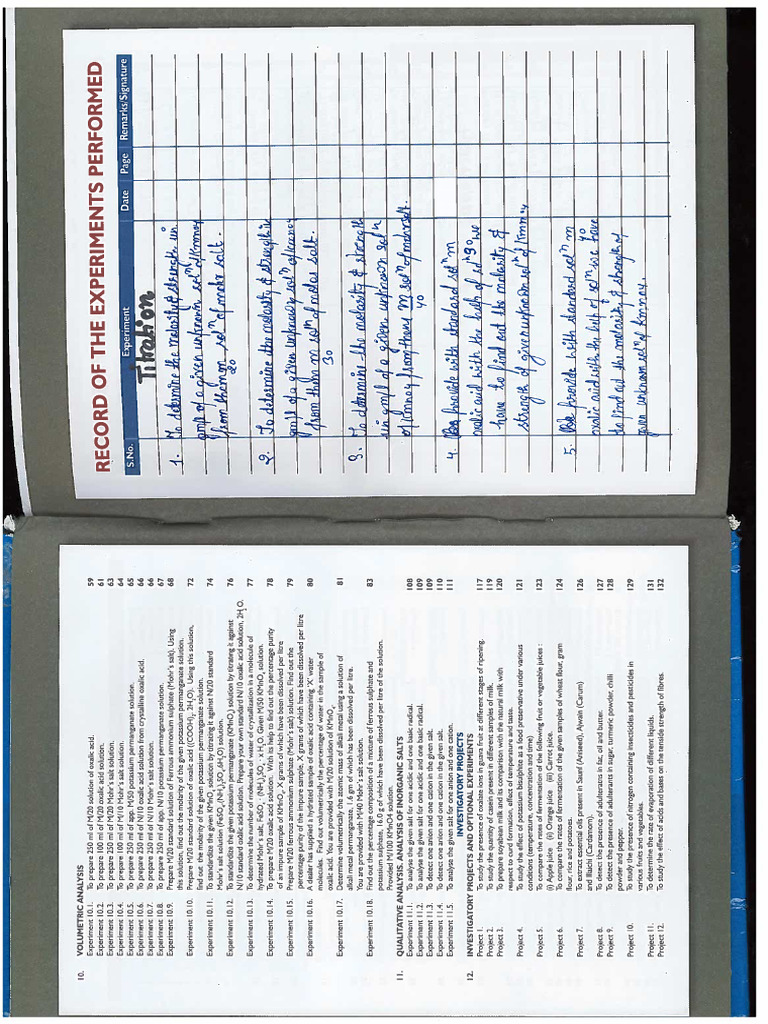 10. VOLUMETRIC ANALYSIS
Experiment 10.1. To prepare 250 ml of M/20 solution of oxalic acid. 59
Experiment 10.2. To prepare 250 ml of M/20 oxalic acid solution. 61
Experiment 10.3. To prepare 250 ml of M/20 Mohr's salt solution. 63
Experiment 10.4. To prepare 100 ml of M/10 Mohr's salt solution. 64
Experiment 10.5. To prepare 250 ml of app. M/50 potassium permanganate solution. 65
Experiment 10.6. To prepare 250 ml of N/10 oxalic acid solution from crystalline oxalic acid. 66
Experiment 10.7. To prepare 250 ml of N/10 Mohr's salt solution. 66
Experiment 10.8. To prepare 250 ml of app. N/10 potassium permanganate solution. 67
Experiment 10.9. Prepare M/20 standard solution of Ferrous ammonium sulphate (Mohr's salt). Using 68
this solution, find out the molarity of the given potassium permanganate solution.
Experiment 10.10. Prepare M/20 standard solution of oxalic acid ((COOH)₂ 2H₂O). Using this solution, 72
find out the molarity of the given potassium permanganate solution.
Experiment 10.11. To standardise the given KMnO₄ solution by titrating it against N/20 standard 74
Mohr's salt solution (FeSO₄.(NH₄)₂SO₄.6H₂O) solution.
Experiment 10.12. To standardize the given potassium permanganate (KMnO₄) solution by titrating it against 76
N/10 standard oxalic acid solution. Prepare your own standard N/10 oxalic acid solution, 2H₂O.
Experiment 10.13. To determine the number of molecules of water of crystallization in a molecule of 77
hydrated Mohr's salt, FeSO₄ . (NH₄)₂SO₄ . x H₂O. Given M/50 KMnO₄ solution.
Experiment 10.14. To prepare M/20 oxalic acid solution. With its help to find out the percentage purity 78
of an impure sample of KMnO₄, X grams of which have been dissolved per litre
Experiment 10.15. Prepare M/20 ferrous ammonium sulphate (Mohr's salt) solution. Find out the 79
percentage purity of the impure sample, X grams of which have been dissolved per litre
Experiment 10.16. A dealer has supplied a hydrated sample of oxalic acid containing 'X' water 80
molecules. Find out volumetrically the percentage of water in the sample of
oxalic acid. You are provided with M/20 solution of KMnO₄.
Experiment 10.17. Determine volumetrically the atomic mass of alkali metal using a solution of 81
alkali metal hydrogen oxalate, 1.6 gm of which have been dissolved per litre.
You are provided with M/40 Mohr's salt solution.
Experiment 10.18. Find out the percentage composition of a mixture of ferrous sulphate and 83
potassium sulphate, 16.0 g of which have been dissolved per litre of the solution.
Provided M/100 KMnO4 solution.
11. QUALITATIVE ANALYSIS. ANALYSIS OF INORGANIC SALTS
Experiment 11.1. To analyse the given salt for one acidic and one basic radical. 108
Experiment 11.2. To analyse the given salt for one acidic and one basic radical. 109
Experiment 11.3. To detect one anion and one cation in the given salt. 109
Experiment 11.4. To detect one anion and one cation in the given salt. 110
Experiment 11.5. To analyse the given salt for one anion and one cation. 111
INVESTIGATORY PROJECTS
12. INVESTIGATORY PROJECTS AND OPTIONAL EXPERIMENTS
Project 1. To study the presence of oxalate ions in guava fruit at different stages of ripening. 117
Project 2. To study the quantity of casein present in different samples of milk. 119
Project 3. To prepare soyabean milk and its comparison with the natural milk with 120
respect to curd formation, effect of temperature and taste.
Project 4. To study the effect of potassium bisulphite as food preservative under various 121
conditions (temperature, concentration and time)
Project 5. To compare the rates of fermentation of the following fruit or vegetable juices : 123
(i) Apple juice (ii) Orange juice (iii) Carrot juice.
Project 6. To compare the rates of fermentation of the given samples of wheat flour, gram 124
flour, rice and potatoes.
Project 7. To extract essential oils present in Saunf (Aniseed), Ajwain (Carum) 126
and Illaichi (Cardamom).
Project 8. To detect the presence of adulterants in fat, oil and butter. 127
Project 9. To detect the presence of adulterants in sugar, turmeric powder, chilli 128
powder and pepper.
Project 10. To study the presence of nitrogen containing insecticides and pesticides in 129
various fruits and vegetables.
Project 11. To determine the rate of evaporation of different liquids. 131
Project 12. To study the effect of acids and bases on the tensile strength of fibres. 132
RECORD OF THE EXPERIMENTS PERFORMED
S.No. Experiment Date Page Remarks/Signature
Titration
1. To determine the molarity & strength in
gm/l of a given unknown solⁿ of kmnoy
from them m/20 solⁿ of mohr salt.
2. To determine the molarity & strength in
gm/l of a given unknown solⁿ of kmnoy
from them m/30 solⁿ of mohrs salt.
3. To determine the molarity & strength
in gm/l of a given unknown solⁿ
of kmnoy from them m/40 solⁿ of mohr salt.
4. provide with standard solⁿ m/30
oxalic acid with the help of solⁿ we
have to find out the molarity &
strength of given unknown solⁿ of kmnoy
5. provide with standard solⁿ m/40
oxalic acid with the help of solⁿ we have
to find out the molarity & strength of
given unknown solⁿ of kmnoy.